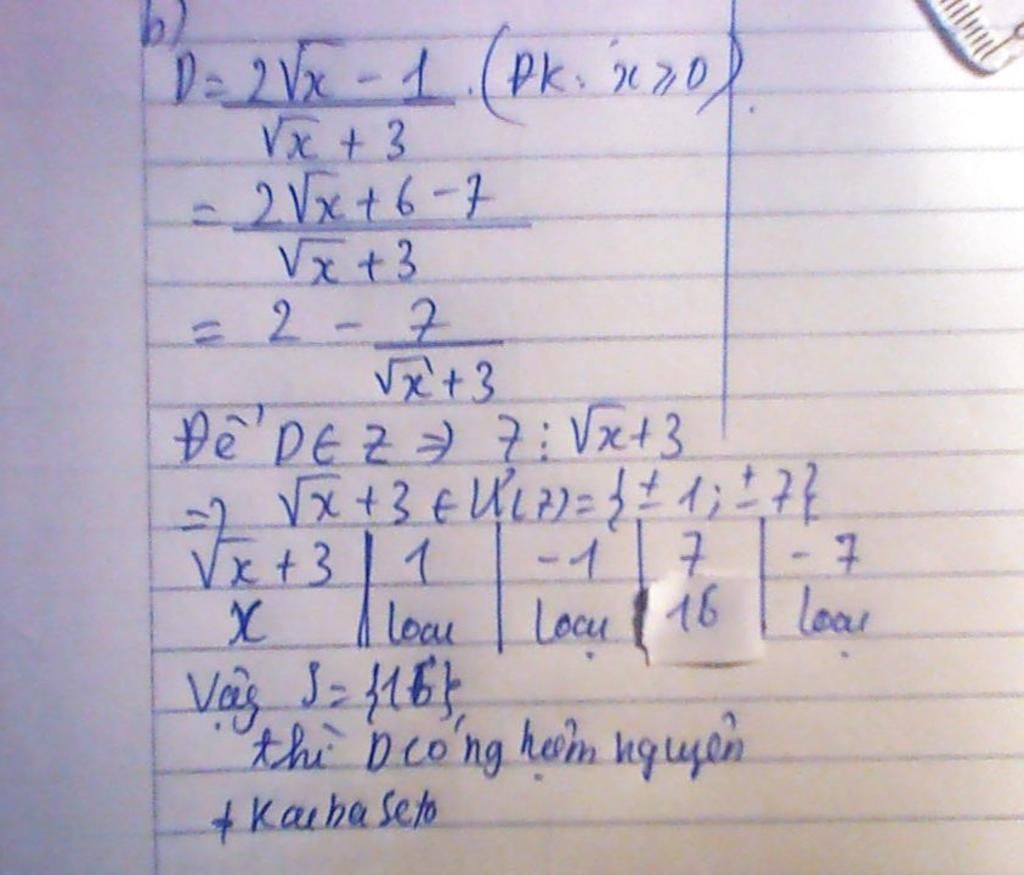 b)
D = (2√x - 1)/(√x + 3) . (ĐK: x ≥ 0)
= (2√x + 6 - 7)/(√x + 3)
= 2 - 7/(√x + 3)
Để D ∈ Z ⇒ 7 ⋮ √x + 3
⇒ √x + 3 ∈ Ư(7) = {± 1; ± 7}
√x + 3 | 1 | -1 | 7 | -7
x | loại | loại | 16 | loại
Vậy S = {16}
thì D có nghiệm nguyên
+ Kaiba Seto